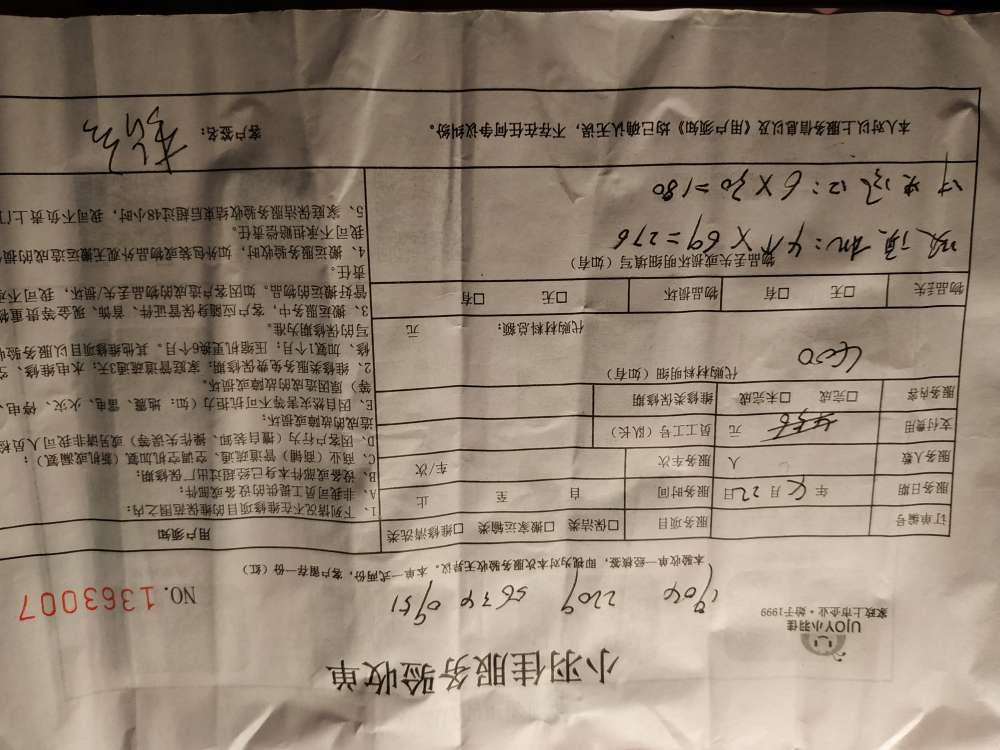 小羽佳服务验收单
UJOY小羽佳
家政上市企业·始于1999
NO. 1363007
本验收单一经核签,即视为对本次服务验收无异议。本单一式两份,客户留存一份(红)
订单编号 服务项目 □保洁类 □搬家运输类 □维修清洗类
服务日期 年 月22日 服务时间 自 至 止
服务人数 人 服务车次 车/次
支付费用 元 员工工号(队长)
服务内容 □完成 □未完成 维修类保修期
代购材料明细(如有)
代购材料总额: 元
物品丢失 □无 □有 物品损坏 □无 □有
物品丢失或损坏明细填写(如有)
4个×69=276
6×30=180
用户须知
1、下列情况不在维修项目的维保范围之内:
A、非我司员工提供的设备或部件;
B、设备或部件本身已经超过出厂保修期;
C、商业(商铺)管道疏通、空调空机加氟(新机或漏氟);
D、因客户行为(擅自装卸、操作失误等)或另请非我司人员检
造成的故障或损坏;
E、因自然灾害等不可抗拒力(如:地震、雷电、火灾、停电、
等)原因造成的故障或损坏。
2、维修类服务免费保修期:家庭管道疏通3天;水电维修、空
修、加氟1个月;压缩机更换6个月。其他维修项目以服务验收
写的保修期为准。
3、搬运服务中,客户应随身保管证件、首饰、现金等贵重物
管好搬运的物品。如因客户造成的物品丢失/损坏,我司不承
责任。
4、搬运服务验收时,如外包装或物品外观无搬运造成的损
我司可不承担赔偿责任。
5、家庭保洁服务验收结束后超过48小时,我司不负责上门
本人对以上服务信息以及《用户须知》均已确认无误,不存在任何争议纠纷。
客户签名: